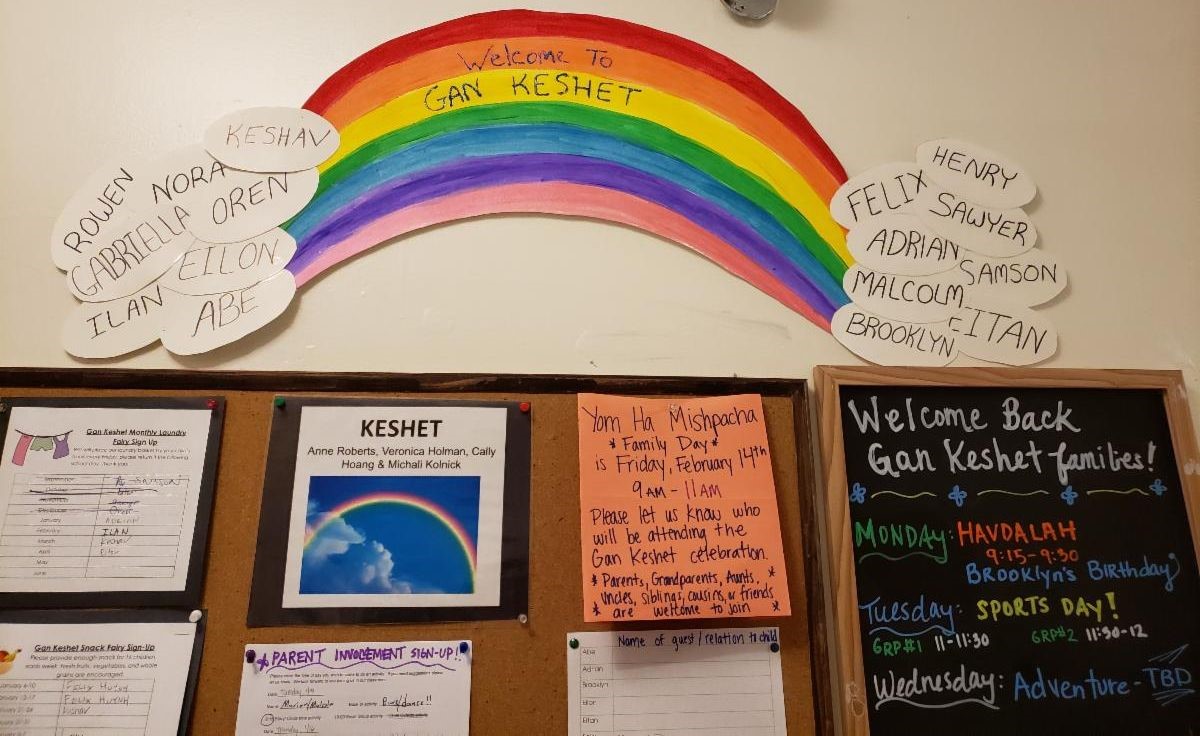 Welcome To
GAN KESHET
KESHAV
ROWEN
NORA
GABRIELLA
OREN
EILON
ILAN
ABE
HENRY
FELIX
SAWYER
ADRIAN
SAMSON
MALCOLM
EITAN
BROOKLYN
Gan Keshet Monthly Laundry
Fairy Sign Up
September
October
November
December
January
February ILAN
March
April
May
June
Gan Keshet Snack Fairy Sign-Up
Please provide enough snack for 16 children
each week. Fresh fruits, vegetables, and whole
grains are encouraged.
FELIX HUYNH
FELIX HUYNH
KESHET
Anne Roberts, Veronica Holman, Cally
Hoang & Michali Kolnick
PARENT INVOLVEMENT SIGN-UP!!
Yom Ha Mishpacha
* Family Day *
is Friday, February 14th
9 AM - 11 AM
Please let us know who
will be attending the
Gan Keshet celebration.
* Parents, Grandparents, Aunts, *
Uncles, siblings, cousins, or friends
* are welcome to join *
Name of guest / relation to child
Abe
Adrian
Brooklyn
Eilon
Eitan
Welcome Back
Gan Keshet families!
MONDAY: HAVDALAH
9:15-9:30
BROOKLYN'S BIRTHDAY
Tuesday: SPORTS DAY!
GRP#1 11-11:30 GRP#2 11:30-12
Wednesday: Adventure - TBD